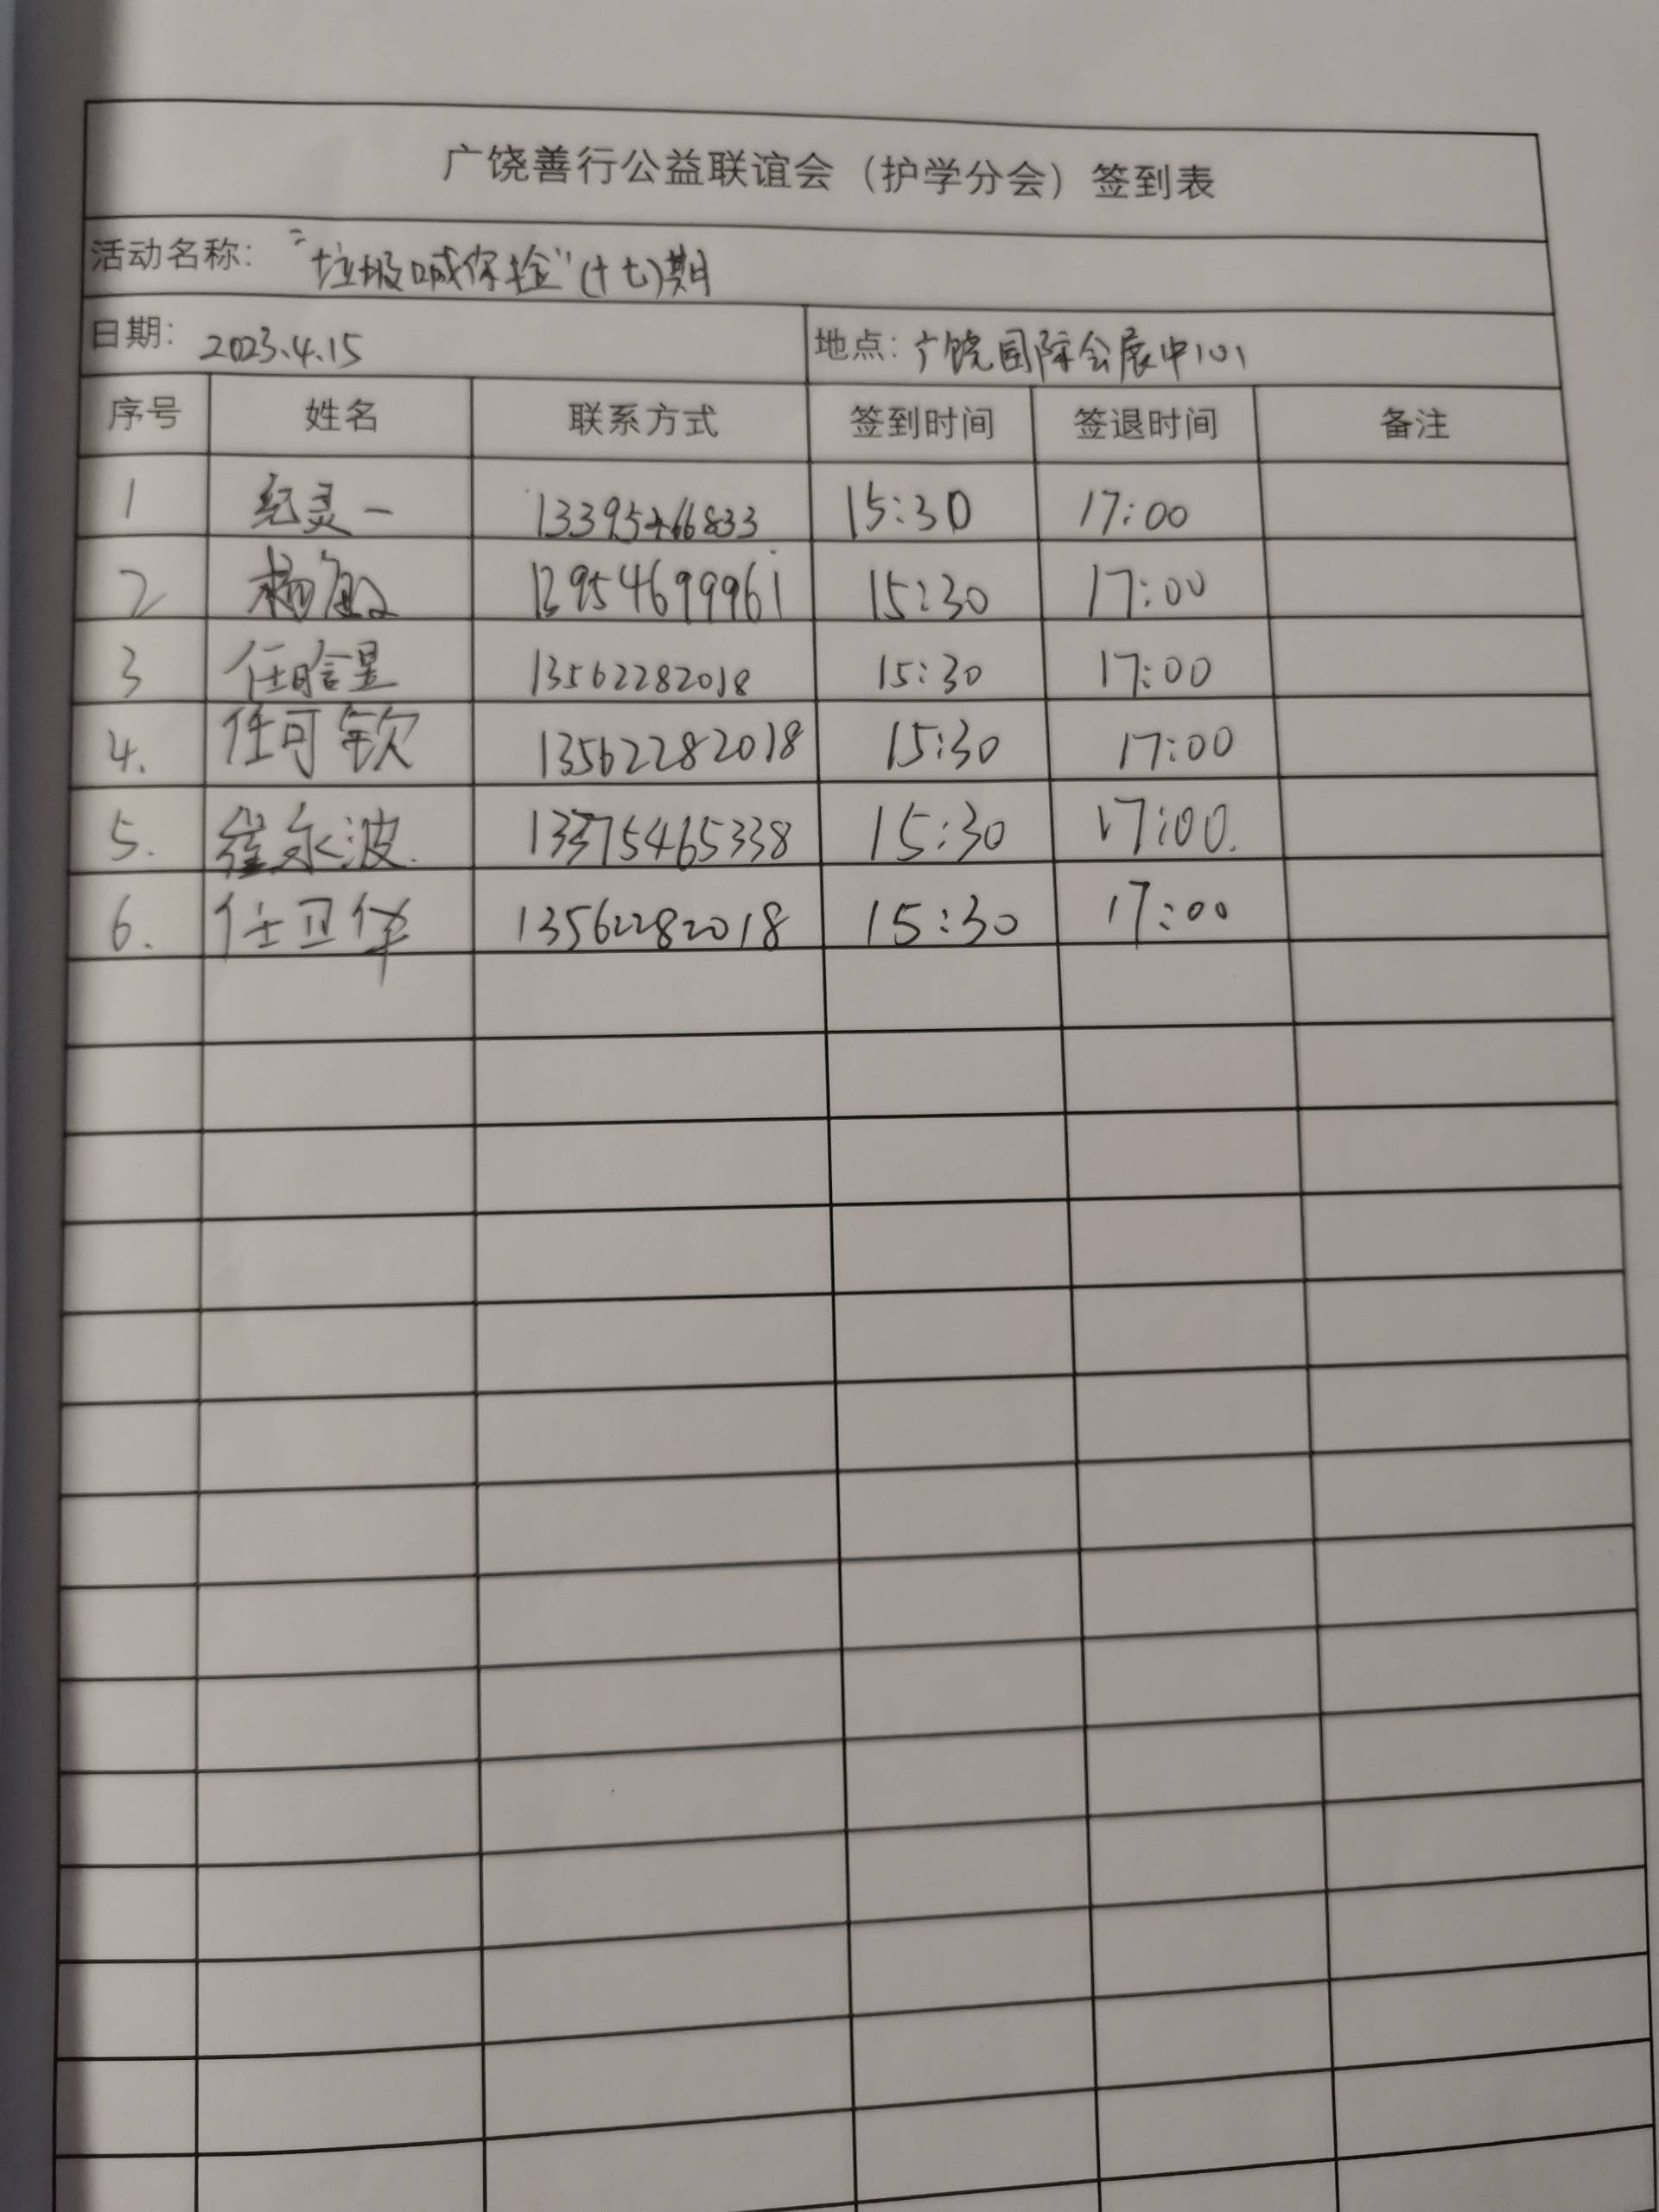 广饶善行公益联谊会（护学分会）签到表
活动名称: "垃圾喊你捡"(十七)期
日期: 2023.4.15 地点: 广饶国际会展中心
序号 姓名 联系方式 签到时间 签退时间 备注
1 纪灵一 13395466833 15:30 17:00
2 杨 15:30 17:00
3 任晗昱 13562282018 15:30 17:00
4. 任可钦 13562282018 15:30 17:00
5. 崔永波. 13375465338 15:30 17:00.
6. 任卫华 13562282018 15:30 17:00